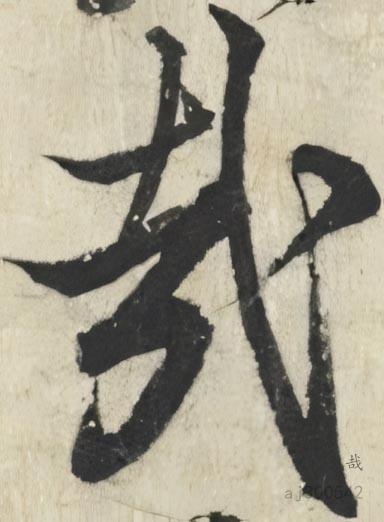 哉
哉
aj300542